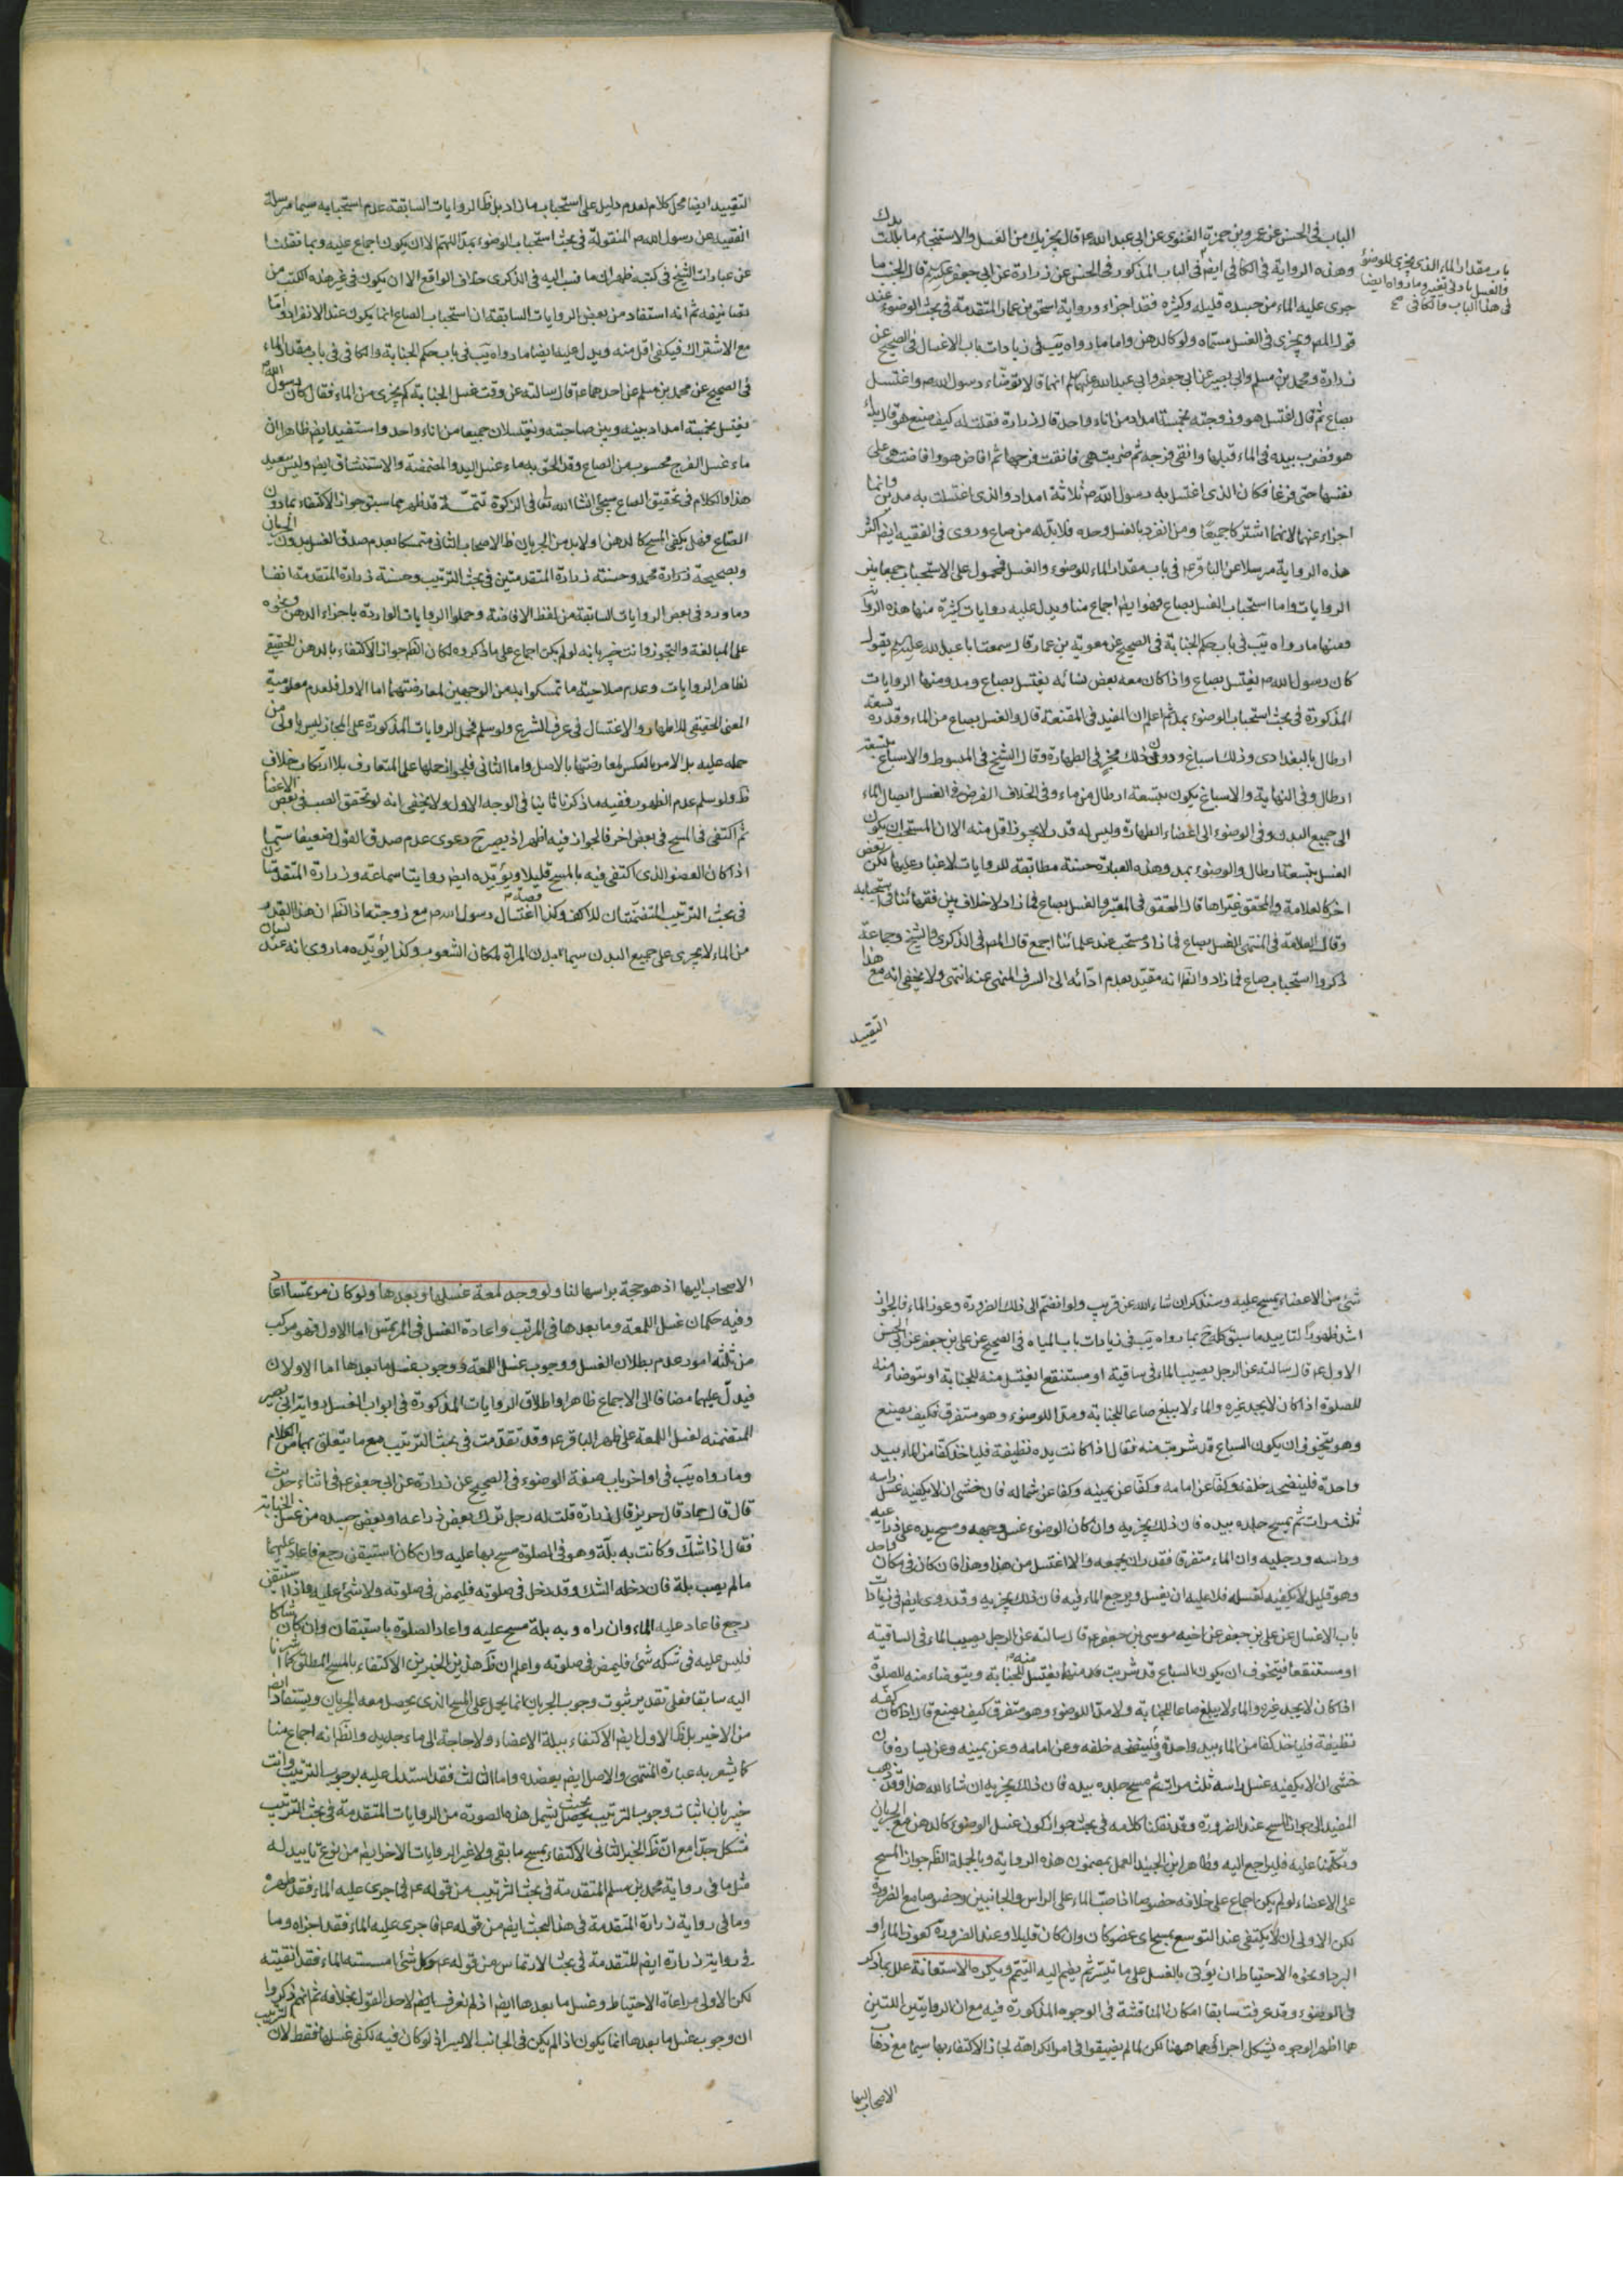 الباب في الحسن عن عمرو بن حمزة الغنوي عن ابي عبد الله ع قال يجزيك من الغسل والاستنجاء ما بللت يدك
وهذه الرواية في الكافي ايضا في الباب المذكور وفي الحسن عن زرارة عن ابي جعفر قال الجنب ما
جرى عليه الماء من جسده قليله وكثيره فقد اجزاءه ورواية اسحق بن عمار المتقدمة في بحث الوضوء عند
قول المص ويجزى في الغسل مسماه ولو كالدهن واما ما رواه يب في زيادات باب الاغسال في الصحيح عن
زرارة ومحمد بن مسلم وابي بصير عن ابي جعفر وابي عبد الله عليهما انهما قالا توضاء رسول الله ص واغتسل
بصاع ثم قال اغتسل هو وزوجته بخمسة امداد من اناء واحد قال زرارة فقلت له كيف صنع هو قال بداء
هو فضرب بيده في الماء قبلها وانقى فرجه ثم ضربت هي فانقت فرجها ثم افاض هو وافاضت هي على
نفسها حتى فرغا فكان الذي اغتسل به رسول الله ص ثلاثة امداد والذي اغتسلت به مدين وانما
اجزاء عنهما لانهما اشتركا جميعا ومن انفرد بالغسل وحده فلا بد له من صاع وروى في الفقيه ايضا اكثر
هذه الرواية مرسلا عن الباقر ع في باب مقدار الماء للوضوء والغسل فمحمول على الاستحباب جمعا بين
الروايات واما استحباب الغسل بصاع فهو ايضا اجماع منا ويدل عليه روايات كثيرة منها هذه الرواية
ومنها ما رواه يب في باب حكم الجنابة في الصحيح عن معوية بن عمار قال سمعت ابا عبد الله يقول
كان رسول الله ص يغتسل بصاع واذا كان معه بعض نسائه يغتسل بصاع ومد ومنها الروايات
المذكورة في بحث استحباب الوضوء بمد ثم اعلم ان المفيد في المقنعة قال والغسل بصاع من الماء وقدره تسعة
ارطال بالبغدادي وذلك اسباغ ودون ذلك مجز في الطهارة وقال الشيخ في المبسوط والاسباغ بتسعة
ارطال وفي النهاية والاسباغ يكون بتسعة ارطال من ماء وفي الخلاف الفرض في الغسل ايصال الماء
الى جميع البدن وفي الوضوء الى اعضاء الطهارة وليس له قدر لا يجوز اقل منه الا ان المستحب ان يكون
الغسل بتسعة ارطال والوضوء بمد وهذه العبارة حسنة مطابقة للروايات لا غبار عليها لكن بعض
اخر كالعلامة والمحقق غيراها قال المحقق في المعتبر والغسل بصاع فما زاد لا خلاف بين فقهائنا في استحبابه
وقال العلامة في المنتهى الغسل بصاع فما زاد مستحب عند علمائنا اجمع قال المص في الذكرى والشيخ وجماعة
ذكروا استحباب صاع فما زاد والظ انه مقيد بعدم ادائه الى السرف المنهى عنه انتهى ولا يخفى انه مع هذا
التقييد
باب مقدار الماء الذي يجزى للوضوء
والغسل
في هذا الباب والكافي صح
التقييد ايضا محل كلام لعدم دليل على استحباب ما زاد بل ظ الروايات السابقة عدم استحبابه سيما مرسلة
الفقيه عن رسول الله ص المنقولة في بحث استحباب الوضوء بمد اللهم الا ان يكون اجماع عليه وبما نقلنا
عن عبارات الشيخ في كتبه ظهر ان ما نسب اليه في الذكرى خلاف الواقع الا ان يكون في غير هذه الكتب من
تصانيفه ثم انه استفاد من بعض الروايات السابقة ان استحباب الصاع انما يكون عند الانفراد واما
مع الاشتراك فيكفي اقل منه ويدل عليه ايضا ما رواه يب في باب حكم الجنابة والكافي في باب مقدار الماء
في الصحيح عن محمد بن مسلم عن احدهما ع قال سالته عن وقت غسل الجنابة كم يجزى من الماء فقال كان رسول الله ص
يغتسل بخمسة امداد بينه وبين صاحبته ويغتسلان جميعا من اناء واحد واستفيد ايضا ظاهرا ان
ماء غسل الفرج محسوب من الصاع وقد الحق به ماء غسل اليد والمضمضة والاستنشاق ايضا وليس ببعيد
هذا والكلام في تحقيق الصاع سيجئ انشاء الله تعالى في الزكوة تتمة قد ظهر مما سبق جواز الاكتفاء بما دون
الصاع فهل يكفي المسح كالدهن او لا بد من الجريان ظ الاصحاب الثاني متمسكا بعدم صدق الغسل بدون الجريان
وبصحيحة زرارة محمد وحسنة زرارة المتقدمتين في بحث الترتيب وحسنة زرارة المتقدمة انفا
وما ورد في بعض الروايات السابقة من لفظ الافاضة وحملوا الروايات الواردة باجزاء الدهن ونحوه
على المبالغة والتجوز وانت خبير بانه لو لم يكن اجماع على ما ذكروه لكان الظ جواز الاكتفاء بالدهن الحقيقي
لظاهر الروايات وعدم صلاحية ما تمسكوا به من الوجهين لمعارضتهما اما الاول فلعدم معلومية
المعنى الحقيقي للاطهار والاغتسال في عرف الشرع ولو سلم فحمل الروايات المذكورة على المجاز ليس باولى من
حمله عليه بل الامر بالعكس لمعارضتها بالاصل واما الثاني فلجواز حملها على المتعارف بلا ارتكاب خلاف
ظ ولو سلم عدم الظهور ففيه ما ذكرنا ثانيا في الوجه الاول ولا يخفى انه لو تحقق الصب في بعض الاعضاء
ثم اكتفى في المسح في بعض اخر فالجواز فيه اظهر اذ يصير ح دعوى عدم صدق القول ضعيفا سيما
اذا كان العضو الذي اكتفى فيه بالمسح قليلا ويؤيده ايضا روايتا سماعة وزرارة المتقدمتان
في بحث الترتيب المتضمنتان للاكف وكذا قصة اغتسال رسول الله ص مع زوجته اذ الظ ان هذا القدر
من الماء لا يجرى على جميع البدن سيما بدن المراة لمكان الشعور وكذا يؤيده ما روى انه عند نسيان
شئ من الاعضاء يمسح عليه وسنذكر ان شاء الله عن قريب ولو انضم الى ذلك الضرورة وعوز الماء فالجواز
اشد ظهورا لتاييد ما سبق كله ح بما رواه يب في زيادات باب المياه في الصحيح عن علي بن جعفر عن ابي الحسن
الاول ع قال سالته عن الرجل يصيب الماء في ساقية او مستنقع ايغتسل منه للجنابة او يتوضاء منه
للصلوة اذا كان لا يجد غيره والماء لا يبلغ صاعا للجنابة ومدا للوضوء وهو متفرق فكيف يصنع
وهو يتخوف ان يكون السباع قد شربت منه فقال اذا كانت يده نظيفة فلياخذ كفا من الماء بيد
واحدة فلينضحه خلفه وكفا عن امامه وكفا عن يمينه وكفا عن شماله فان خشى ان لا يكفيه غسل راسه
ثلث مرات ثم يمسح جلده بيده فان ذلك يجزيه وان كان الوضوء غسل وجهه ومسح يده على ذراعيه
وراسه ورجليه وان الماء متفرقا فقدر ان يجمعه والا اغتسل من هذا وهذا فان كان في مكان واحد
وهو قليل لا يكفيه لغسله فلا عليه ان يغتسل ويرجع الماء فيه فان ذلك يجزيه وقد روى ايضا في زيادات
باب الاغسال عن علي بن جعفر عن اخيه موسى بن جعفر ع قال سالته عن الرجل يصيب الماء في الساقية
او مستنقعا فيتخوف ان يكون السباع قد شربت منه ايغتسل منه للجنابة ويتوضاء منه للصلوة
اذا كان لا يجد غيره والماء لا يبلغ صاعا للجنابة ولا مدا للوضوء وهو متفرق كيف يصنع قال اذا كان كفه
نظيفة فلياخذ كفا من الماء بيد واحدة ولينضحه خلفه وعن امامه وعن يمينه وعن يساره فان
خشى ان لا يكفيه غسل راسه ثلث مرات ثم مسح جلده بيده فان ذلك يجزيه ان شاء الله هذا وقد ذهب
المفيد الى جواز المسح عند الضرورة وقد نقلنا كلامه في بحث جواز كون غسل الوضوء كالدهن مع الجريان
وتكلمنا عليه فليراجع اليه وظاهر ابن الجنيد العمل بمضمون هذه الرواية وبالجملة الظ جواز المسح
على الاعضاء لو لم يكن اجماع على خلافه خصوصا اذا صب الماء على الراس والجانبين وخصوصا مع الضرورة
لكن الاولى ان لا يكتفى عند التوسع بمسح اي عضو كان وان كان قليلا وعند الضرورة كعوز الماء او
البرد ونحوه الاحتياط ان يؤتى بالغسل على ما تيسر ثم يضم اليه التيمم ويكره الاستعانة علل بما ذكر
في الوضوء وقد عرفت سابقا امكان المناقشة في الوجوه المذكورة فيه مع ان الروايتين اللتين
هما اظهر الوجوه يشكل اجرائهما ههنا لكن لما لم يضيقوا في امر الكراهة لجاز الاكتفاء بها سيما مع ذهاب
الاصحاب اليها
الاصحاب اليها اذ هو حجة براسها لنا ولو وجد لمعة غسلها وبعدها ولو كان مرتمسا اعاد
وفيه حكمان غسل اللمعة وما بعدها في المرتب واعادة الغسل في المرتمس اما الاول فهو مركب
من ثلثة امور عدم بطلان الغسل ووجوب غسل اللمعة ووجوب غسل ما بعدها اما الاولان
فيدل عليهما مضافا الى الاجماع ظاهرا واطلاق الروايات المذكورة في ابواب الغسل رواية ابي بصير
المتضمنة لغسل اللمعة على ظهر الباقر ع وقد تقدمت في بحث الترتيب مع ما يتعلق بها من الكلام
وما رواه يب في اواخر باب صفة الوضوء في الصحيح عن زرارة عن ابي جعفر ع في اثناء حديث
قال قال حماد قال حريز قال زرارة قلت له رجل ترك بعض ذراعه او بعض جسده من غسل الجنابة
فقال اذا شك وكانت به بلة وهو في الصلوة مسح بها عليه وان كان استيقن رجع فاعاد عليهما
ما لم يصب بلة فان دخله الشك وقد دخل في صلوته فليمض في صلوته ولا شئ عليه وان استيقن
رجع فاعاد عليه الماء وان راه وبه بلة مسح عليه واعاد الصلوة باستيقان وان كان شاكا
فليس عليه في شكه شئ فليمض في صلوته واعلم ان ظ هذين الخبرين الاكتفاء بالمسح المطلق كما اشرنا
اليه سابقا فعلى تقدير ثبوت وجوب الجريان انما يحمل على المسح الذي يحصل معه الجريان ويستفاد ايضا
من الاخير بل ظ الاول ايضا الاكتفاء ببلة الاعضاء ولا حاجة الى ماء جديد والظ انه اجماع منا
كما يشعر به عبارة المنتهى والاصل ايضا يعضده واما الثالث فقد استدل عليه بوجوب الترتيب وانت
خبير بان اثبات وجوب الترتيب بحيث يشمل هذه الصورة من الروايات المتقدمة في بحث الترتيب
مشكل جدا مع ان ظ الخبر الثاني الاكتفاء بمسح ما بقى ولا غير الروايات الاخر ايضا من نوع تاييد له
مثل ما في رواية محمد بن مسلم المتقدمة في بحث الترتيب من قوله ع فما جرى عليه الماء فقد طهر
وما في رواية زرارة المتقدمة في هذا البحث ايضا من قوله ع فما جرى عليه الماء فقد اجزاه وما
في رواية زرارة ايضا المتقدمة في بحث الارتماس من قوله ع وكل شئ امسسته الماء فقد انقيته
لكن الاولى مراعاة الاحتياط وغسل ما بعدها ايضا اذ لم نعرف ايضا لاحد القول بخلافه ثم انهم ذكروا
ان وجوب غسل ما بعدها انما يكون اذا لم يكن في الجانب الايسر اذ لو كان فيه لكفى غسلها فقط لان الترتيب